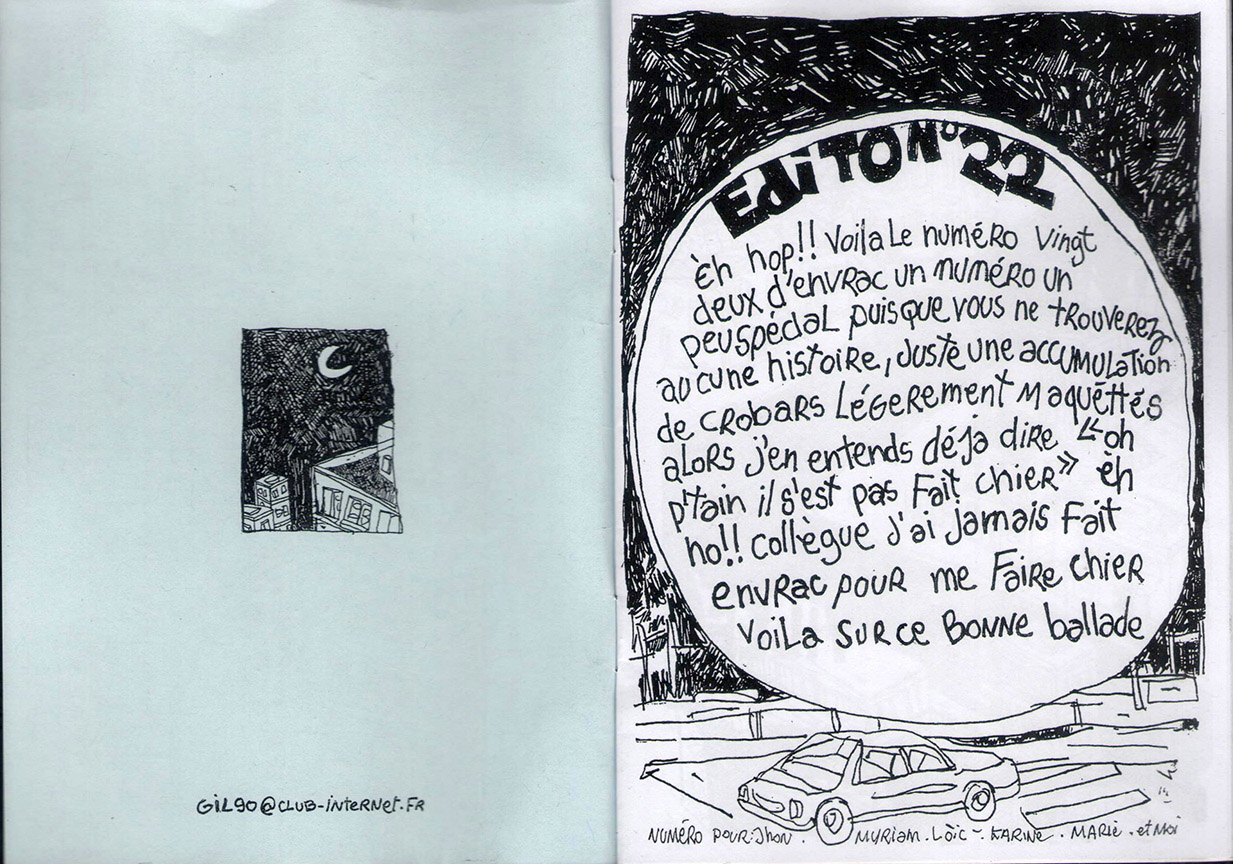 GiL90@CLUB-INTERNET.FR
EDITO N°22
èh hop!! Voila Le numéro vingt
deux d'envrac un numéro un
peu spécial puisque vous ne trouverez
aucune histoire, Juste une accumulation
de crobars Légerement Maquéttés
alors j'en entends déja dire «oh
p'tain il s'est pas Fait chier» èh
ho!! collègue J'ai jamais Fait
envrac pour me Faire chier
Voila sur ce Bonne ballade
NUMÉRO POUR: Jhon. MYRIAM. Loïc - KARINE. MARIE. et Moi